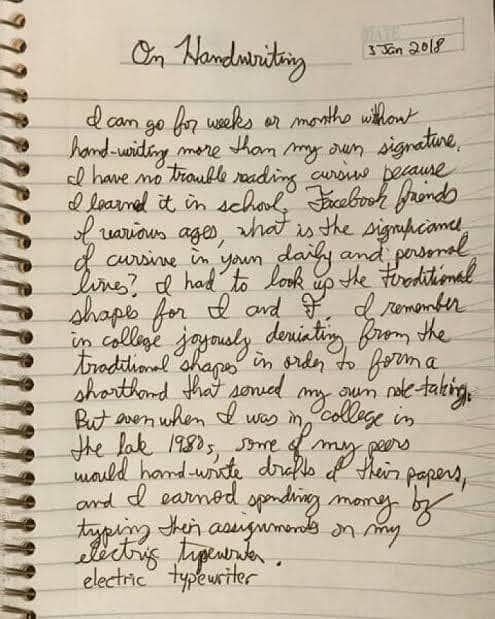 DATE
3 Jan 2018
On Handwriting
I can go for weeks or months without
hand-writing more than my own signature.
I have no trouble reading cursive because
I learned it in school. Facebook friends
of various ages, what is the significance
of cursive in your daily and personal
lives? I had to look up the traditional
shapes for I and F. I remember
in college joyously deviating from the
traditional shapes in order to form a
shorthand that served my own note-taking.
But even when I was in college in
the late 1980s, some of my peers
would hand-write drafts of their papers,
and I earned spending money by
typing their assignments on my
electric typewriter.
electric typewriter